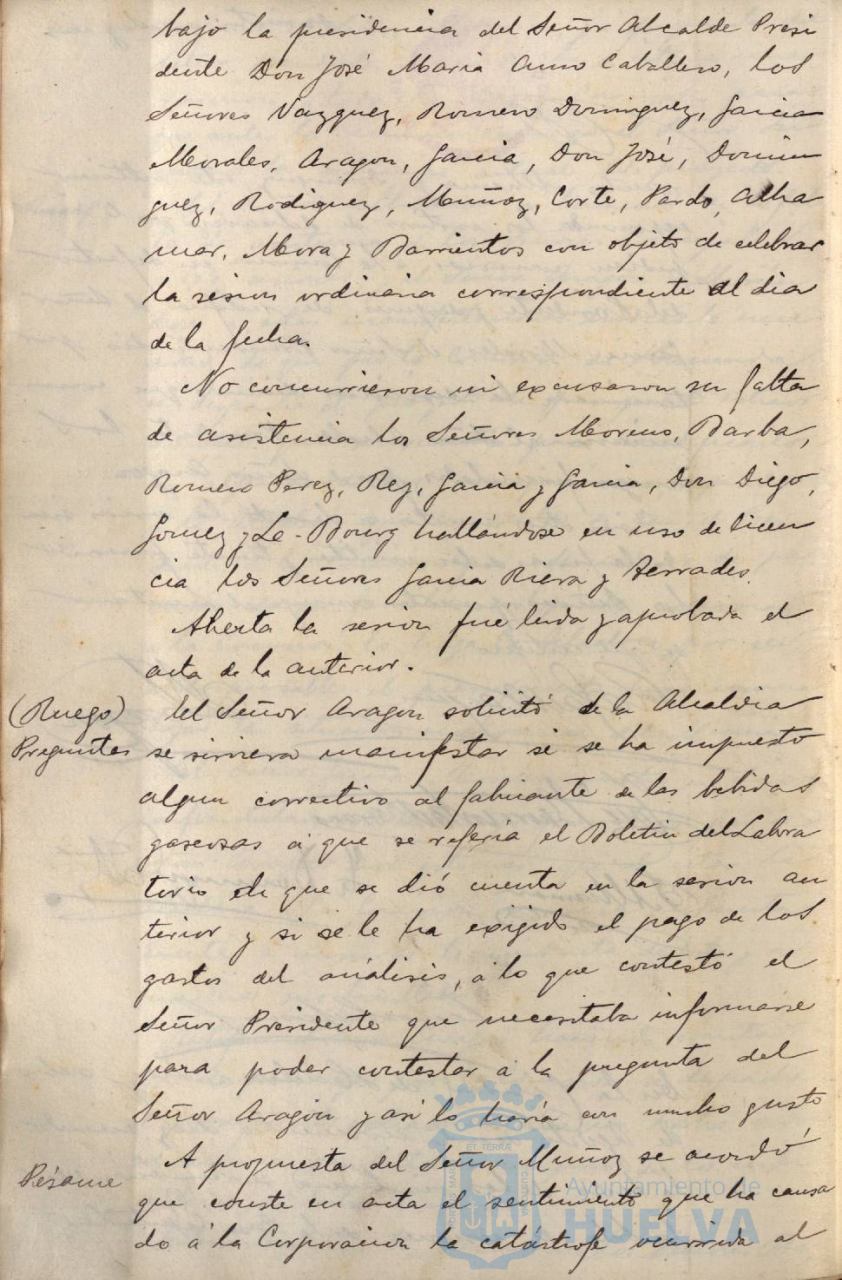 bajo la presidencia del Señor Alcalde Presi
dente Don José Maria Amo Caballero, los
Señores Vazquez, Romero Dominguez, Garcia
Morales, Aragon, Garcia, Don José, Domin
guez, Rodriguez, Muñoz, Corte, Pardo, Alha
mar, Mora y Barrientos con objeto de celebrar
la sesion ordinaria correspondiente al dia
de la fecha.
No concurrieron ni excusaron su falta
de asistencia los Señores Moreno, Barba,
Romero Perez, Rey, Garcia y Garcia, Don Diego,
Gomez y Le-Bourg hallándose en uso de licen
cia los Señores Garcia Riera y Terrades.
Abierta la sesion fué leida y aprobada el
acta de la anterior.
(Ruego)
Preguntas
El Señor Aragon solicitó de la Alcaldia
se sirviera manifestar si se ha impuesto
algun correctivo al fabricante de las bebidas
gaseosas á que se referia el Boletin del Labora
torio de que se dió cuenta en la sesion an
terior y si se le ha exigido el pago de los
gastos del análisis, á lo que contestó el
Señor Presidente que necesitaba informarse
para poder contestar á la pregunta del
Señor Aragon y asi lo haria con mucho gusto
Pésame
A propuesta del Señor Muñoz se acordó
que conste en acta el sentimiento que ha causa
do á la Corporacion la catástrofe ocurrida al
Ayuntamiento de
HUELVA